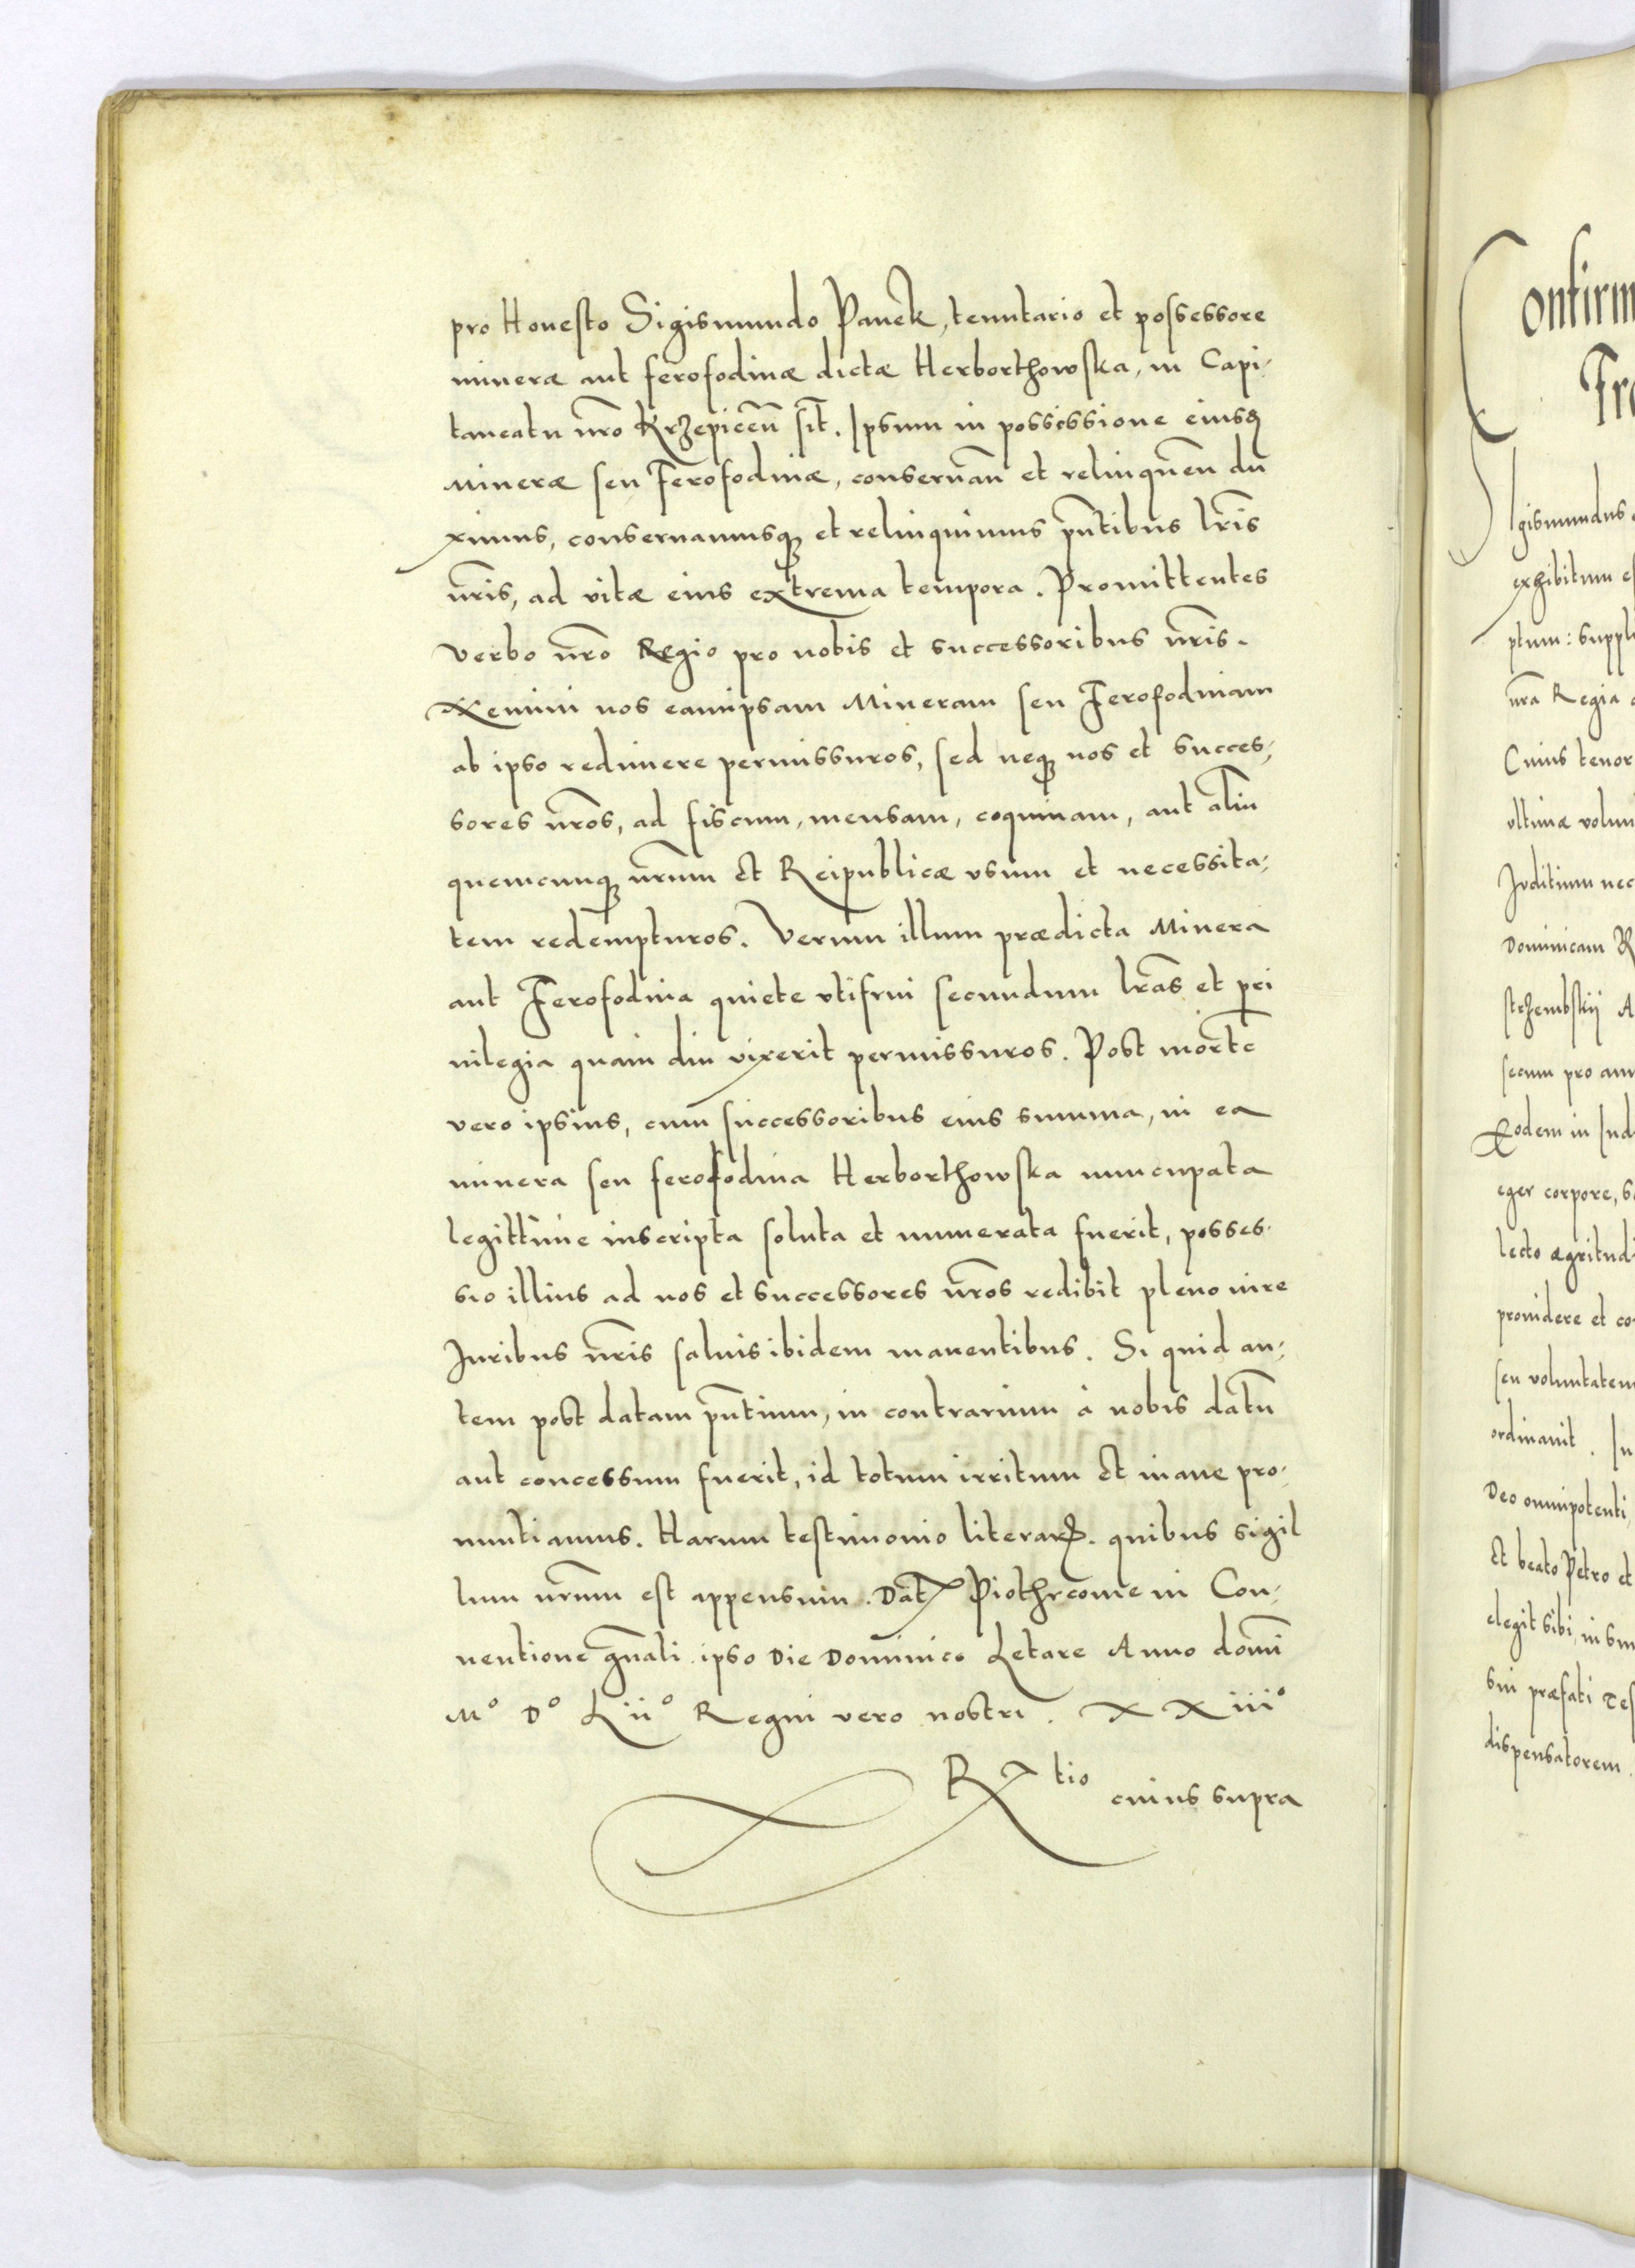 pro Honesto Sigismundo Panek, tenutario et possessore
mineræ aut ferofodinæ dictæ Herborthowska, in Capi-
taneatu nr̄o Krzepiceñ sit̄. Ipsum in possessione eiusq
Mineræ seu Ferofodinæ, conseruan̄ et relinquen̄ du
ximus, conseruamusq et relinquimus pn̄tibus lr̄is
nr̄is, ad vitæ eius extrema tempora. Promittentes
Verbo nr̄o Regio pro nobis et successoribus nr̄is.
Nemini nos eamipsam Mineram seu Ferofodinam
ab ipso redimere permissuros, sed neq nos et succes-
sores nr̄os, ad fiscum, mensam, coquinam, aut aliū
quemcunq nr̄um et Reipublicæ vsum et necessita-
tem redempturos. Verum illum prædicta Minera
aut Ferofodina quiete vtifrui secundum lr̄as et pri
uilegia quam diu vixerit permissuros. Post mortē
vero ipsius, cum successoribus eius summa, in ea
minera seu ferofodina Herborthowska nuncupata
legittime inscripta soluta et numerata fuerit, posses-
sio illius ad nos et successores nr̄os redibit pleno iure
Iuribus nr̄is saluis ibidem manentibus. Si quid au-
tem post datam pn̄tium, in contrarium à nobis datū
aut concessum fuerit, id totum irritum et inane pro-
nuntiamus. Harum testimonio literarꝝ. quibus sigil
lum nr̄um est appensum. Dat̄ Piothrcouie in Con-
uentione gn̄ali ipso Die Dominico Letare Anno domī
Mº Dº Liiº Regni vero nostri. XXiiiº
R tio cuius supra
onfirm
Fr
Igismundus
exhibitum es
ptum: suppli
nr̄a Regia
Cuius tenor
vltimæ volun
Iuditium nec
Dominicam R
strzembskij A
secum pro an
Eodem in Iud
eger corpore, s
lecto ægritudi
prouidere et co
seu voluntatem
ordinauit. In
Deo omnipotenti,
Et beato Petro et
elegit sibi, in
sui præfati Tes
dispensatorem.